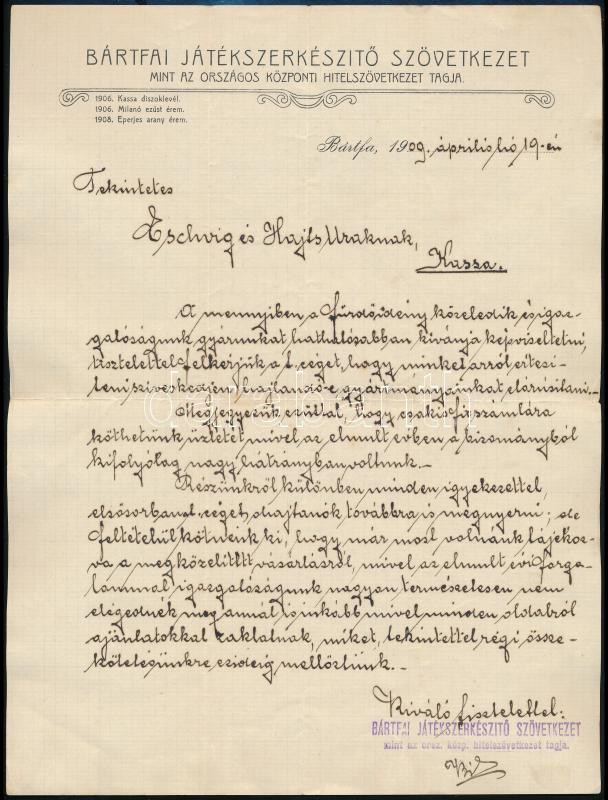 BÁRTFAI JÁTÉKSZERKÉSZITŐ SZÖVETKEZET
MINT AZ ORSZÁGOS KÖZPONTI HITELSZÖVETKEZET TAGJA.
1906. Kassa diszoklevél.
1906. Milanó ezüst érem.
1908. Eperjes arany érem.
Bártfa, 1909. április hó 19-én
Tekintetes
Eschwig és Hajts Uraknak,
Kassa.
A mennyiben a fürdőidény közeledik és igaz-
gatóságunk gyárunkat hathatósabban kivánja képviseltetni,
tisztelettel felkérjük a t. céget, hogy minket arról értesi-
teni sziveskedjen hajlandó-e gyártmányainkat elárúsitani.-
Megjegyezzük ezúttal, hogy csakis fix számlára
köthetünk üzletet mivel az elmult évben a bizományból
kifolyólag nagy hátrányban voltunk.-
Részünkről különben minden igyekezettel,
elsősorban t. céget, óhajtanók továbbra is megnyerni; de
feltételül kötnénk ki, hogy már most volnánk tájékoz-
va a megközelitett vásárlásról, mivel az elmult évi forga-
lommal igazgatóságunk nagyon természetesen nem
elégednék meg annál is inkább mivel minden oldalról
ajánlatokkal zaklatnak, miket, tekintettel régi össze-
kötetésünkre ezideig mellőztünk.-
Kiváló tisztelettel:
BÁRTFAI JÁTÉKSZERKÉSZITŐ SZÖVETKEZET
mint az orsz. közp. hitelszövetkezet tagja.